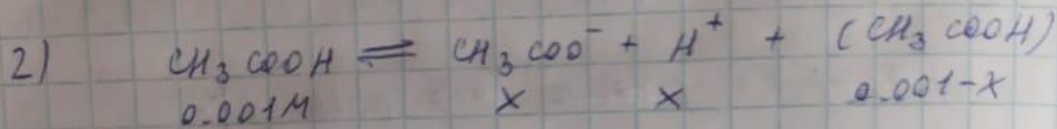 2) CH₃COOH ⇌ CH₃COO⁻ + H⁺ + (CH₃COOH)
0.001M x x 0.001-x